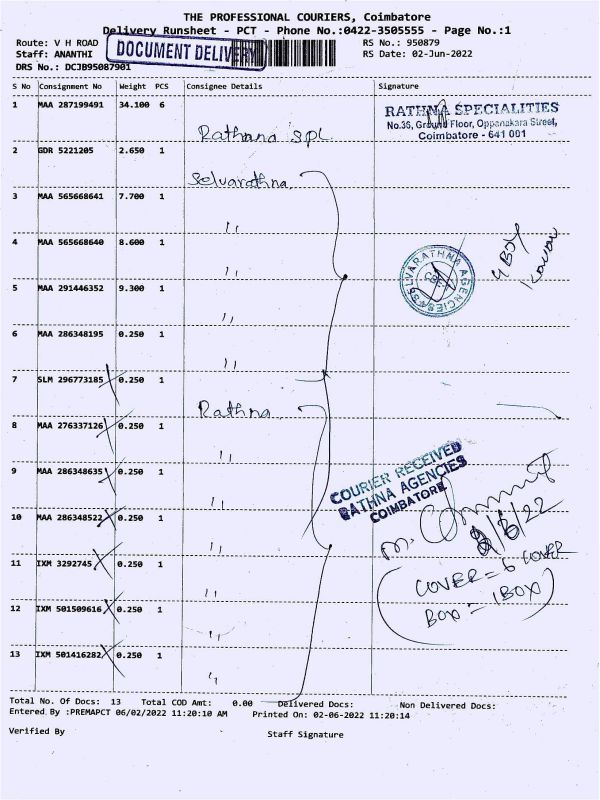 THE PROFESSIONAL COURIERS, Coimbatore
Delivery Runsheet - PCT - Phone No.:0422-3505555 - Page No.:1
Route: V H ROAD
RS No.: 950879
Staff: ANANTHI
DOCUMENT DELIVERY
RS Date: 02-Jun-2022
DRS No.: DCJB95087901
S No Consignment No Weight PCS Consignee Details Signature
1 MAA 287199491 34.100 6 Rathna spl
RATHNA SPECIALITIES
No.36, Ground Floor, Oppanakara Street,
Coimbatore - 641 001
2 GDR 5221205 2.650 1 Selvarathna
3 MAA 565668641 7.700 1 ,,
4 MAA 565668640 8.600 1 ,,
SELVARATHNA AGENCIES
4 BOX
5 MAA 291446352 9.300 1 ,,
6 MAA 286348195 0.250 1 ,,
7 SLM 296773185 0.250 1 Rathna
8 MAA 276337126 0.250 1 ,,
COURIER RECEIVED
RATHNA AGENCIES
COIMBATORE
9 MAA 286348635 0.250 1 ,,
10 MAA 286348522 0.250 1 ,,
2/6/22
11 IXM 3292745 0.250 1 ,,
COVER = 6 COVER
BOX = 1BOX
12 IXM 501509616 0.250 1 ,,
13 IXM 501416282 0.250 1 ,,
Total No. Of Docs: 13 Total COD Amt: 0.00 Delivered Docs: Non Delivered Docs:
Entered By :PREMAPCT 06/02/2022 11:20:10 AM Printed On: 02-06-2022 11:20:14
Verified By Staff Signature